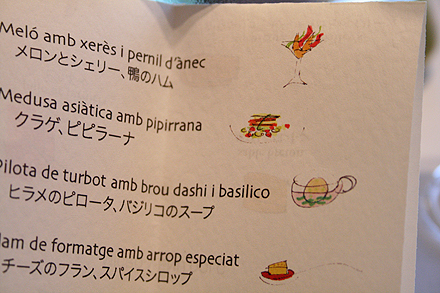 Meló amb xerès i pernil d'ànec
メロンとシェリー、鴨のハム
Medusa asiàtica amb pipirrana
クラゲ、ピピラーナ
Pilota de turbot amb brou dashi i basilico
ヒラメのピロータ、バジリコのスープ
de formatge amb arrop especiat
チーズのフラン、スパイスシロップ